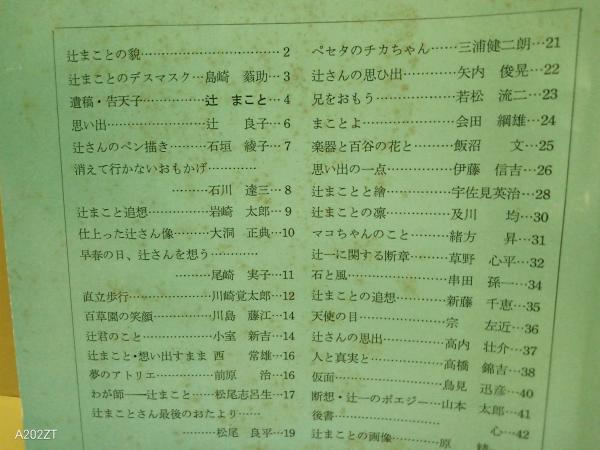 辻まことの貌……………………………2
辻まことのデスマスク…島崎 蓊助…3
遺稿・告天子……………辻 まこと…4
思い出……………………辻 良子…6
辻さんのペン描き………石垣 綾子…7
消えて行かないおもかげ…………
………石川 達三…8
辻まこと追想……………岩崎 太郎…9
仕上った辻さん像………大洞 正典…10
早春の日、辻さんを想う…………
………尾崎 実子…11
直立歩行…………………川崎覚太郎…12
百草園の笑顔……………川島 藤江…14
辻君のこと………………小室 新吉…14
辻まこと・想い出すまま 西 常雄…16
夢のアトリエ……………前原 治…16
わが師――辻まこと……松尾志呂生…17
辻まことさん最後のおたより……
………松尾 良平…19
ペセタのチカちゃん……三浦健二朗…21
辻さんの思ひ出…………矢内 俊晃…22
兄をおもう………………若松 流二…23
まことよ…………………会田 綱雄…24
楽器と百谷の花と………飯沼 文…25
思い出の一点……………伊藤 信吉…26
辻まことと繪……………宇佐見英治…28
辻まことの凛……………及川 均…30
マコちゃんのこと………緒方 昇…31
辻一に関する断章………草野 心平…32
石と風……………………串田 孫一…34
辻まことの追想…………新藤 千恵…35
天使の目…………………宗 左近…36
辻さんの思出……………高内 壮介…37
人と真実と………………高橋 錦吉…38
仮面………………………鳥見 迅彦…40
断想・辻一のポエジー…山本 太郎…41
後書………………………心…42
辻まことの画像…………原
A202ZT